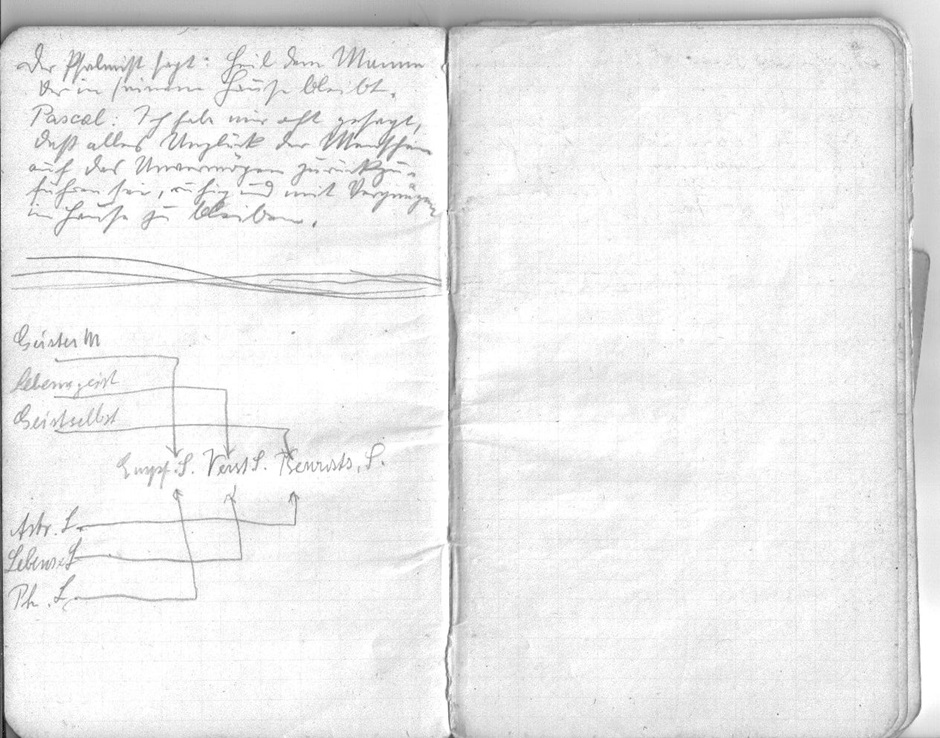 Der Psalmist sagt: Heil dem Manne
der in seinem Hause bleibt.
Pascal: Ich habe mir oft gesagt,
daß alles Unglück der Menschen
auf das Unvermögen zurückzu-
führen sei, ruhig und mit Vergnügen
im Hause zu bleiben.
Geister M
Lebensgeist
Geistselbst
Empf. S. Verst S. Bewusts. S.
Astr. L.
Lebens L
Ph. L.